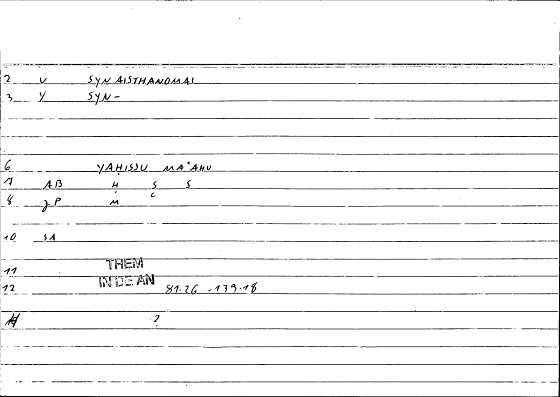 2 V SYNAISTHANOMAI
3 Y SYN-
6 YAḤISSU MAʿAHU
7 AB Ḥ S S
8 P M C
10 SA
11 THEM
IN DE AN
12 81.26 - 139.18
?